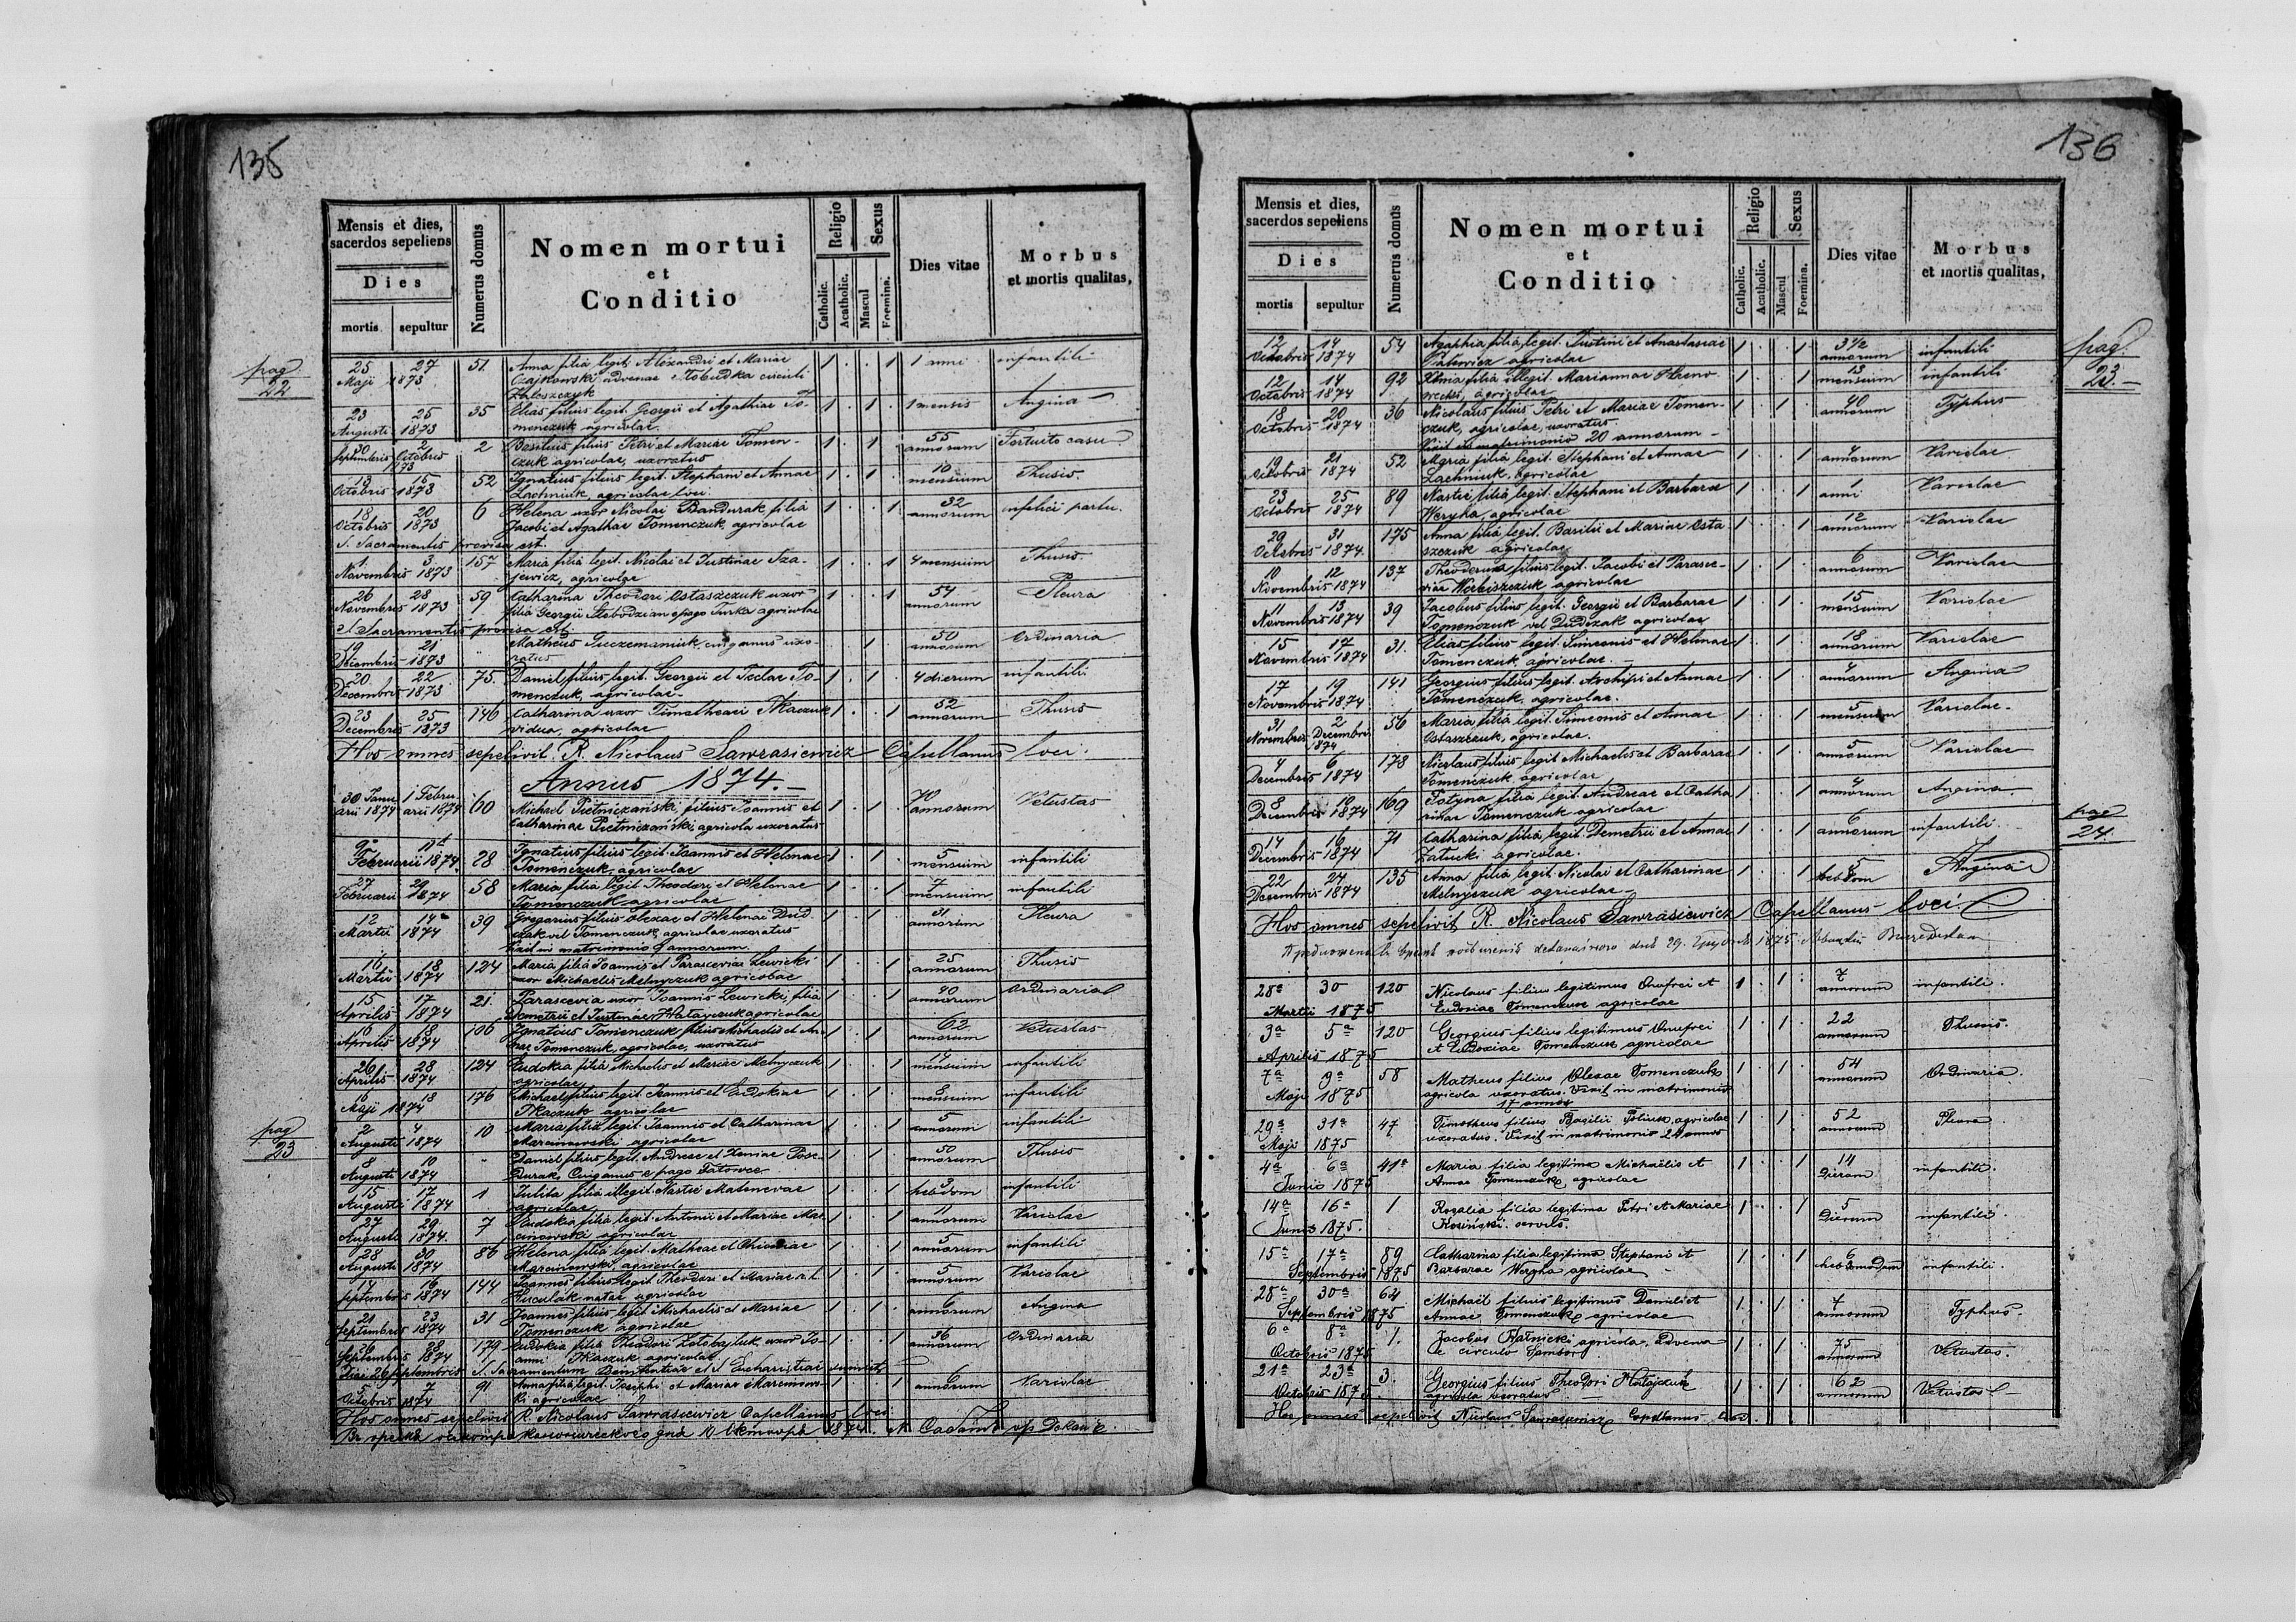 135
Mensis et dies, sacerdos sepeliens
Dies
mortis sepultur
Numerus domus
Nomen mortui
et
Conditio
Religio
Catholic. Acatholic.
Sexus
Mascul Foemina.
Dies vitae
Morbus
et mortis qualitas,
pag
22
25 27 51 Anna filia legit. Alexandri et Mariae 1 . . 1 1 anni infantili
Maji 1873 Czajkowski advenae Słobudka circuli
Zaloszczyk
23 25 35 Elias filius legit. Georgii et Agathiae To- 1 . 1 . 1 mensis Angina
Augusti 1873 menczuk agricolae
30 2 2 Basilius filius Petri et Mariae Tomen- 1 . 1 55 annorum Fortuito casu
Septembris Octobris 1873 czuk agricolae, uxoratus
15 52 Ignatius filius legit. Stephani et Annae 1 . 1 . 10 mensium Thusis
Octobris 1873 Lachniuk, agricolae loci
18 20 6 Helena uxor Nicolai Bandurak, filia 1 . . 1 32 annorum infelici partu.
Octobris 1873 Jacobi et Agathae Tomenczuk, agricolae
S. Sacramentis provisa est.
1 3 157 Maria filia legit. Nicolai et Justinae Sza- 1 . . 1 4 mensium Thusis
Novembris 1873 jewicz, agricolae
26 28 59 Catharina Theodori Ostaszczuk uxor 1 . . 1 54 annorum Pleura
Novembris 1873 filia Georgii Słobodzian e pago Turka agricolae
S. Sacramentis provisa est.
19 21 Matheus cinganus uxo- 1 50 annorum Ordinaria
Decembris 1873 ratus
20 22 75. Daniel, filius legit. Georgii et Teclae To- 1 . 1 . 4 dierum infantili
Decembris 1873 menczuk, agricolae
23 25 146 Catharina uxor Timothaei Tkaczuk 1 . . 1 52 annorum Thusis
Decembris 1873 vidua, agricolae
Hos omnes sepelivit R. Nicolaus Sawrasiewicz Capellanus loci.
Annus 1874.
30 Janu- 1 Febru- 60 Michael Pietniczański, filius Joannis et 1 . 1 . 70 annorum Vetustas
arii 1874 arii 1874 Catharinae Pietniczański, agricola uxoratus
9 11 28 Ignatius filius legit. Joannis et Helenae 1 . 1 . 5 mensium infantili
Februarii 1874 Tomenczuk, agricolae
27 29 58 Maria filia legit. Theodori et Helenae 1 . . 1 7 mensium infantili
Februarii 1874 Tomenczuk agricolae
12 14 39 Gregorius filius Olexae et Helenae Dud- 1 . 1 . 31 annorum Pleura
Martii 1874 czak vel Tomenczuk, agricolae uxoratus
Vixit in matrimonio 9 annorum.
16 18 124 Maria filia Joannis et Parasceviae Lewicki 1 . . 1 25 annorum Thusis
Martii 1874 uxor Michaelis Melnyczuk agricolae
15 17 21. Parascevia uxor Joannis Lewicki, filia 1 . . 1 40 annorum Ordinaria
Aprilis 1874 Demetrii et Justinae Hałayczuk agricolae
16 18 106 Ignatius Tomenczuk, filius Michaelis et An- 1 . 1 62 annorum Vetustas
Aprilis 1874 nae Tomenczuk, agricolae, uxoratus
26 28 124 Eudokia filia Michaelis et Mariae Melnyczuk 1 . . 1 14 mensium infantili
Aprilis 1874 agricolae
16 18 176 Michael, filius legit. Joannis et Eudokiae 1 . 1 . 8 mensium infantili
Maji 1874 Tkaczuk agricolae
pag
23
2 4 10 Maria filia legit. Joannis et Catharinae 1 . . 1 5 annorum infantili
Augusti 1874 Marcinowski agricolae
8 10 " Daniel filius legit. Andreae et Xeniae 1 . 1 . 50 annorum Thusis
Augusti 1874 Cinganus e pago
15 17 1 Julita filia illegit. Nastiae 1 . . 1 3 hebdom infantili
Augusti 1874 agricolae
27 29 7 Eudokia filia legit. Antonii et Mariae Mar- 1 . . 1 11 annorum Variolae
Augusti 1874. cinowski agricolae
28 30 86 Helena filia legit. Mathaei et 1 . . 1 5 annorum infantili
Augusti 1874 Marcinowski, agricolae
14 16 144 Joannes filius legit. Theodori et Mariae 1 . 1 . 5 annorum Variolae
Septembris 1874 Huculak natae agricolae
21 23 31 Joannes filius legit. Michaelis et Mariae 1 . 1 . 6 annorum Angina
Septembris 1874 Tomenczuk agricolae
26 28 179 Eudokia filia Theodori uxor Jo- 1 . . 1 36 annorum Ordinaria
Septembris 1874 anni Tkaczuk agricolae
Die 26 Septembris S. Sacramentum Poenitentiae et S. Eucharistiae sumsit
5 7 91 Anna filia legit. Josephi et Mariae Marcinows- 1 . . 1 6 annorum Variolae
Octobris 1874 ki agricolae
Hos omnes sepelivit R. Nicolaus Sawrasiewicz Capellanus loci
136
Mensis et dies, sacerdos sepeliens
Dies
mortis sepultur
Numerus domus
Nomen mortui
et
Conditio
Religio
Catholic. Acatholic.
Sexus
Mascul Foemina.
Dies vitae
Morbus
et mortis qualitas,
pag.
23.
12 14 54 Agaphia filia legit. Justini et Anastasiae 1 . . 1 3½ annorum infantili
Octobris 1874 agricolae
12 14 92 Anna filia illegit. Mariannae 1 . . 1 13 mensium infantili
Octobris 1874 agricolae
18 20 36 Nicolaus filius Petri et Mariae Tomen- 1 . 1 40 annorum Typhus
Octobris 1874 czuk, agricolae, uxoratus
Vixit in matrimonio 20 annorum
19 21 52 Maria filia legit. Stephani et Annae 1 . . 1 4 annorum Variolae
Octobris 1874 Lachniuk, agricolae
23 25 89 Nastie filia legit. Stephani et Barbarae 1 . . 1 1 anni Variolae
Octobris 1874 Weryha, agricolae
29 31 175 Anna filia legit. Basilii et Mariae Osta- 1 . . 1 12 annorum Variolae
Octobris 1874. szczuk agricolae
10 12 137 Theodorus filius legit. Jacobi et Parasce- 1 . 1 . 6 annorum Variolae
Novembris 1874 viae agricolae
11 13 39 Jacobus filius legit. Georgii et Barbarae 1 . 1 . 15 mensium Variolae
Novembris 1874 Tomenczuk vel Dudczak agricolae
15 17 31. Elias filius legit. Simeonis et Helenae 1 . 1 . 18 annorum Variolae
Novembris 1874 Tomenczuk, agricolae.
17 19 141 Georgius filius legit. Archipi et Annae 1 . 1 . 4 annorum Angina
Novembris 1874 Tomenczuk, agricolae.
31 2 56 Maria filia legit. Simeonis et Annae 1 . . 1 5 mensium Variolae
Novembris Decembris 1874 Ostaszczuk, agricolae.
4 6 178 Nicolaus filius legit. Michaelis et Barbarae 1 . 1 . 5 annorum Variolae
Decembris 1874 Tomenczuk agricolae
8 10 169 Fotyna filia legit. Andreae et Catha- 1 . . 1 4 annorum Angina.
Decembris 1874 rinae Tomenczuk agricolae
pag
24.
14 16 71 Catharina filia legit. Demetrii et Annae 1 . . 1 6 annorum infantili.
Decembris 1874 Załucki agricolae.
22 24 135 Anna filia legit. Nicolai et Catharinae 1 . . 1 5 hebdom Angina
Decembris 1874 Melnyczuk agricolae
Hos omnes sepelivit R. Nicolaus Sawrasiewicz Capellanus loci.
28ª 30 120 Nicolaus filius legitimus Onufrei et 1 . 1 . 7 annorum infantili.
Martii 1875 Eudoxiae Tomenczuk agricolae
3ª 5ª 120 Georgius filius legitimus Onufrei 1 . 1 . 22 annorum Thusis.
Aprilis 1875 et Eudoxiae Tomenczuk agricolae
7ª 9ª 58 Matheus filius Olexae Tomenczuk 1 . 1 . 54 annorum Ordinaria.
Maji 1875 agricola uxoratus. Vixit in matrimonio
17 annos
29ª 31ª 47 Timotheus filius Basilii Poliuk, agricolae 1 . 1 . 52 annorum Pleura
Maji 1875 uxoratus. Vixit in matrimonio 24 annos
4ª 6ª 41ª Maria filia legitima Michaelis et 1 . . 1 14 dierum infantili.
Junii 1875 Annae Tomenczuk agricolae
14ª 16ª 1 Rozalia filia legitima Petri et Mariae 1 . . 1 5 dierum infantili.
Junii 1875. Kosiński servils.
15ª 17ª 89 Catharina filia legitima Stephani et 1 . . 1 6 hebdomadum infantili.
Septembris 1875 Barbarae Weryha agricolae
28ª 30ª 64 Michael filius legitimus Danilis et 1 . 1 . 7 annorum Typhus.
Septembris 1875 Annae Tomenczuk agricolae
6ª 8ª 1. Jacobus Ratnicki agricola, advena 1 . 1 . 75 annorum Vetustas.
Octobris 1875 e circulo Sambor
21ª 23ª 3. Georgius filius Theodori Hałajczuk 1 . 1 . 62 annorum Vetustas
Octobris 1875 agricola uxoratus
Hos omnes sepelivit Nicolaus Sawrasiewicz Capellanus loci.